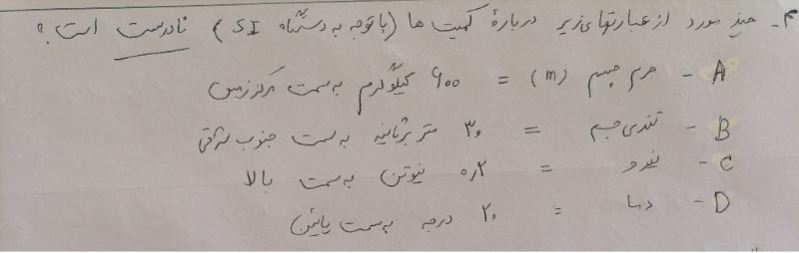 ۴- چند مورد از عبارتهای زیر دربارهٔ کمیت ها (باتوجه به دستگاه SI) نادرست است؟
A - جرم جسم (m) = ۶۰۰ کیلوگرم به سمت مرکز زمین
B - تندی جسم = ۳۰ متر بر ثانیه به سمت جنوب شرقی
C - نیرو = ۰٫۲ نیوتن به سمت بالا
D - دما = ۲۰ درجه به سمت پائین